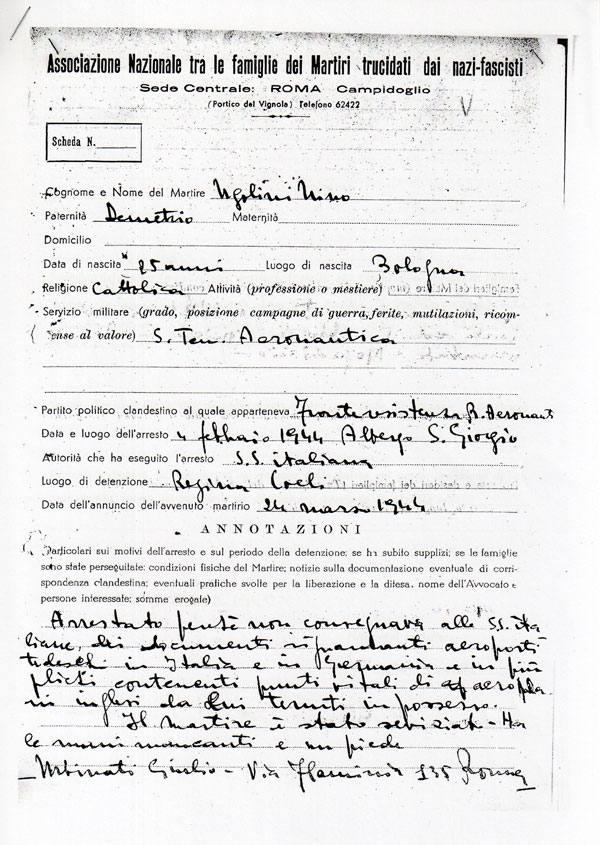 Associazione Nazionale tra le famiglie dei Martiri trucidati dai nazi-fascisti
Sede Centrale: ROMA Campidoglio
(Portico del Vignola) Telefono 62422
Scheda N.
Cognome e Nome del Martire Ugolini Nino
Paternità Demetrio Maternità
Domicilio
Data di nascita 25 anni Luogo di nascita Bologna
Religione Cattolica Attività (professione o mestiere)
Servizio militare (grado, posizione campagne di guerra, ferite, mutilazioni, ricom-
pense al valore) S. Ten. Aeronautica
Partito politico clandestino al quale apparteneva Fronte resistenza R. Aeronaut
Data e luogo dell'arresto 4 febbraio 1944 Albergo S. Giorgio
Autorità che ha eseguito l'arresto S.S. italiana
Luogo di detenzione Regina Coeli
Data dell'annuncio dell'avvenuto martirio 24 marzo 1944
ANNOTAZIONI
(Particolari sui motivi dell'arresto e sul periodo della detenzione; se ha subito supplizi; se le famiglie
sono state perseguitate: condizioni fisiche del Martire; notizie sulla documentazione eventuale di corri-
spondenza clandestina; eventuali pratiche svolte per la liberazione e la difesa, nome dell'Avvocato e
persone interessate; somme erogate)
Arrestato perché non consegnava alle SS. ita
liane, dei documenti riguardanti aeroporti
tedeschi in Italia e in Germania e in più
plichi contenenti punti vitali di aeropla
ni inglesi da lui tenuti in possesso.
Il Martire è stato seviziato - Ha
le mani mancanti e un piede
Urbinati Giulio - Via Flaminia 135 Roma